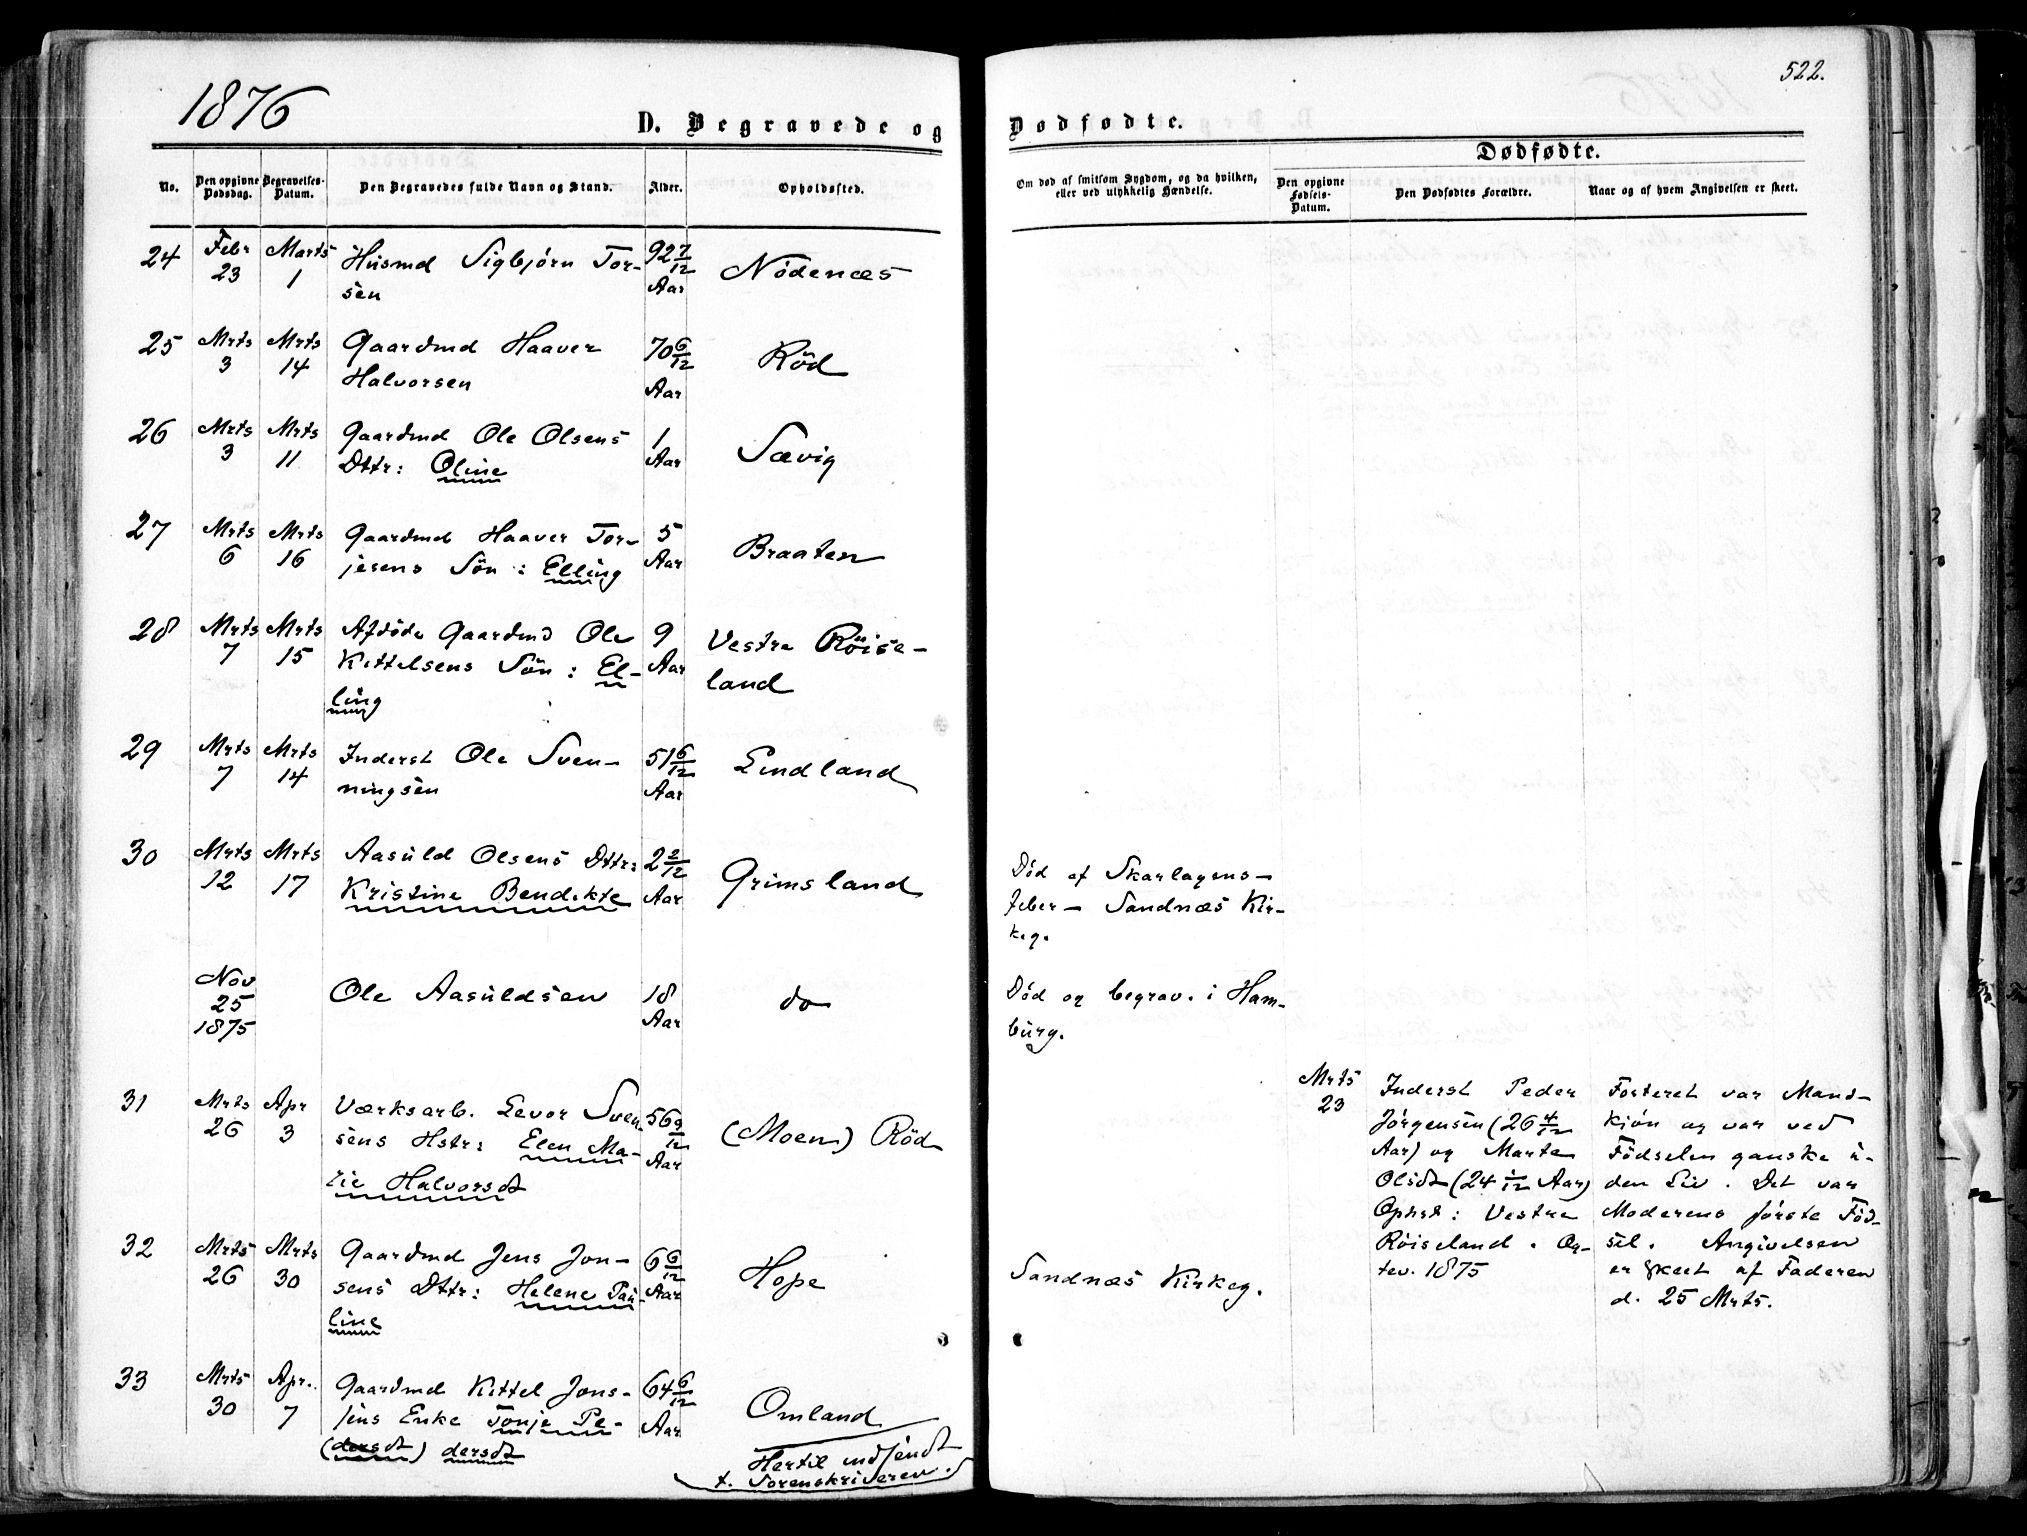 1876
D. Begravede og
No.
Den opgivne Dødsdag.
Begravelses-Datum.
Den Begravedes fulde Navn og Stand.
Alder.
Opholdssted.
24 Febr 23 Marts 1 Husmd Sigbjørn Tor- 92 7/12 Aar Nödenæs
sen
25 Mrts 3 Mrts 14 Gaardmd Haaver 70 6/12 Aar Röd
Halvorsen
26 Mrts 3 Mrts 11 Gaardmd Ole Olsens 1 Aar Sævig
Dttr: Oline
27 Mrts 6 Mrts 16 Gaardmd Haaver Tor- 5 Aar Braaten
jesens Sön : Elling
28 Mrts 7 Mrts 15 Afdöde Gaardmd Ole 9 Aar Vestre Röise-
Kittelsens Sön : El- land
ling
29 Mrts 7 Mrts 14 Inderst Ole Sven- 51 6/12 Aar Lindland
ningsen
30 Mrts 12 Mrts 17 Aasuld Olsens Dttr: 2 2/12 Aar Grimsland
Kristine Bendikte
Nov 25 1875 Ole Aasuldsen 18 Aar do
31 Mrts 26 Apr 3 Værksarb. Levor Sven- 56 9/12 Aar (Moen) Röd
sens Hstr: Elen Ma-
rie Halvorsdt
32 Mrts 26 Mrts 30 Gaardmd Jens Jon- 6 6/12 Aar Hope
sens Dttr: Helene Pau-
line
33 Mrts 30 Apr. 7 Gaardmd Kittel Jons- 64 6/12 Aar Omland
sens Enke Tonje Pe-
(dersdt) dersdt
Hertil indsendt
t. Sorenskriveren.
522.
Dødfødte.
Dødfødte.
Om død af smitsom Sygdom, og da hvilken,
eller ved ulykkelig Hændelse.
Den opgivne
Fødsels-
Datum.
Den Dødfødtes Forældre.
Naar og af hvem Angivelsen er skeet.
Död af Skarlagens-
feber - Sandnæs Kir-
keg.
Död og begrav. i Ham-
burg.
Mrts
23
Inderst Peder
Jörgensen (26 4/12
Aar) og Marte
Olsdt (24 1/12 Aar)
Ophst : Vestre
Röiseland . Og-
tev. 1875
Fosteret var Mand-
kjön og var ved
Födselen ganske u-
den Liv . Det var
Moderens förste Föd-
sel. Angivelsen
er skeet af Faderen
d. 25 Mrts.
Sandnæs Kirkeg.